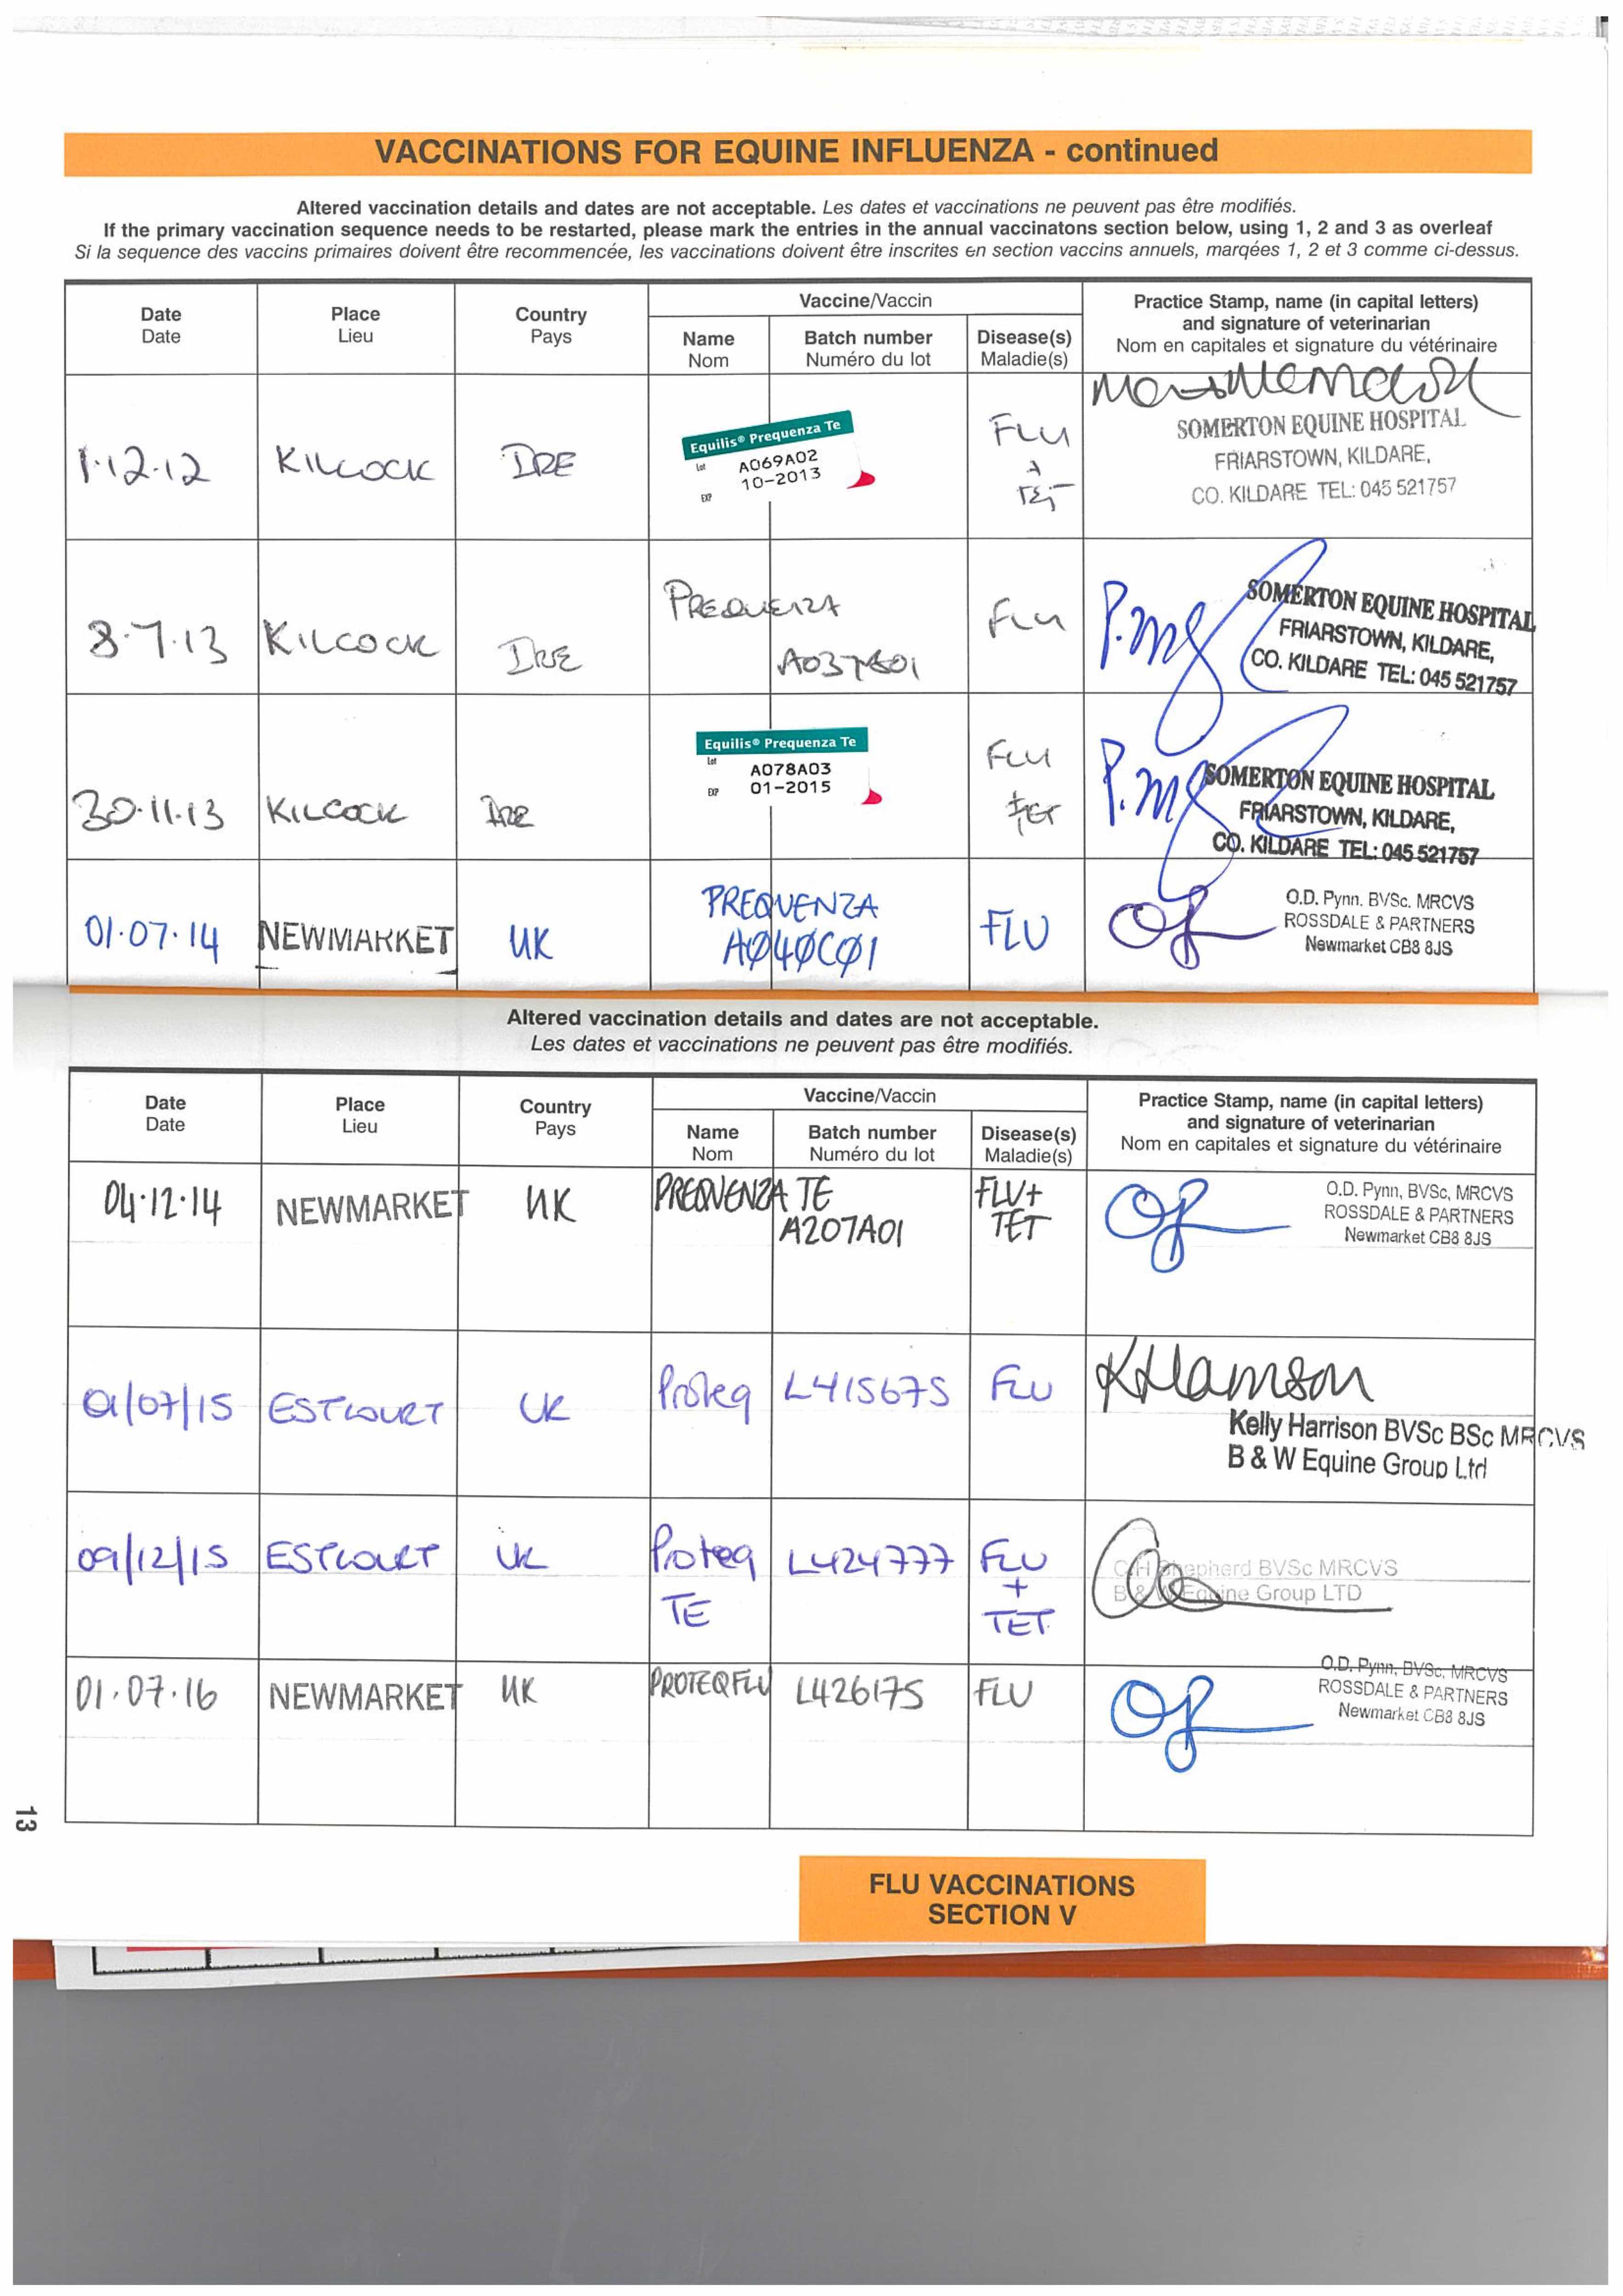 VACCINATIONS FOR EQUINE INFLUENZA - continued
Altered vaccination details and dates are not acceptable. Les dates et vaccinations ne peuvent pas être modifiés.
If the primary vaccination sequence needs to be restarted, please mark the entries in the annual vaccinatons section below, using 1, 2 and 3 as overleaf
Si la sequence des vaccins primaires doivent être recommencée, les vaccinations doivent être inscrites en section vaccins annuels, marqées 1, 2 et 3 comme ci-dessus.
Date Place Country Vaccine/Vaccin Practice Stamp, name (in capital letters)
Date Lieu Pays Name Batch number Disease(s) and signature of veterinarian
Nom Numéro du lot Maladie(s) Nom en capitales et signature du vétérinaire
1.12.12 KILCOCK IRE
Equilis® Prequenza Te
Lot A069A02
EXP 10-2013
FLU
TET
SOMERTON EQUINE HOSPITAL
FRIARSTOWN, KILDARE,
CO. KILDARE TEL: 045 521757
8.7.13 KILCOCK IRE
PREQUENZA
FLU
SOMERTON EQUINE HOSPITAL
FRIARSTOWN, KILDARE,
CO. KILDARE TEL: 045 521757
30.11.13 KILCOCK IRE
Equilis® Prequenza Te
Lot A078A03
EXP 01-2015
FLU
TET
SOMERTON EQUINE HOSPITAL
FRIARSTOWN, KILDARE,
CO. KILDARE TEL: 045 521757
01.07.14 NEWMARKET UK
PREQUENZA
A040C01
FLU
O.D. Pynn. BVSc. MRCVS
ROSSDALE & PARTNERS
Newmarket CB8 8JS
Altered vaccination details and dates are not acceptable.
Les dates et vaccinations ne peuvent pas être modifiés.
Date Place Country Vaccine/Vaccin Practice Stamp, name (in capital letters)
Date Lieu Pays Name Batch number Disease(s) and signature of veterinarian
Nom Numéro du lot Maladie(s) Nom en capitales et signature du vétérinaire
04.12.14 NEWMARKET UK
PREQUENZA TE
A207A01
FLU+
TET
O.D. Pynn, BVSc, MRCVS
ROSSDALE & PARTNERS
Newmarket CB8 8JS
01/07/15 ESTCOURT UK Proteq L415675 FLU
KHarrison
Kelly Harrison BVSc BSc MRCVS
B & W Equine Group Ltd
09/12/15 ESTCOURT UK Proteq L424777 FLU
TE
+
TET
Shepherd BVSc MRCVS
B & W Equine Group LTD
01.07.16 NEWMARKET UK PROTEQFLU L426175 FLU
O.D. Pynn, BVSc, MRCVS
ROSSDALE & PARTNERS
Newmarket CB8 8JS
13
FLU VACCINATIONS
SECTION V